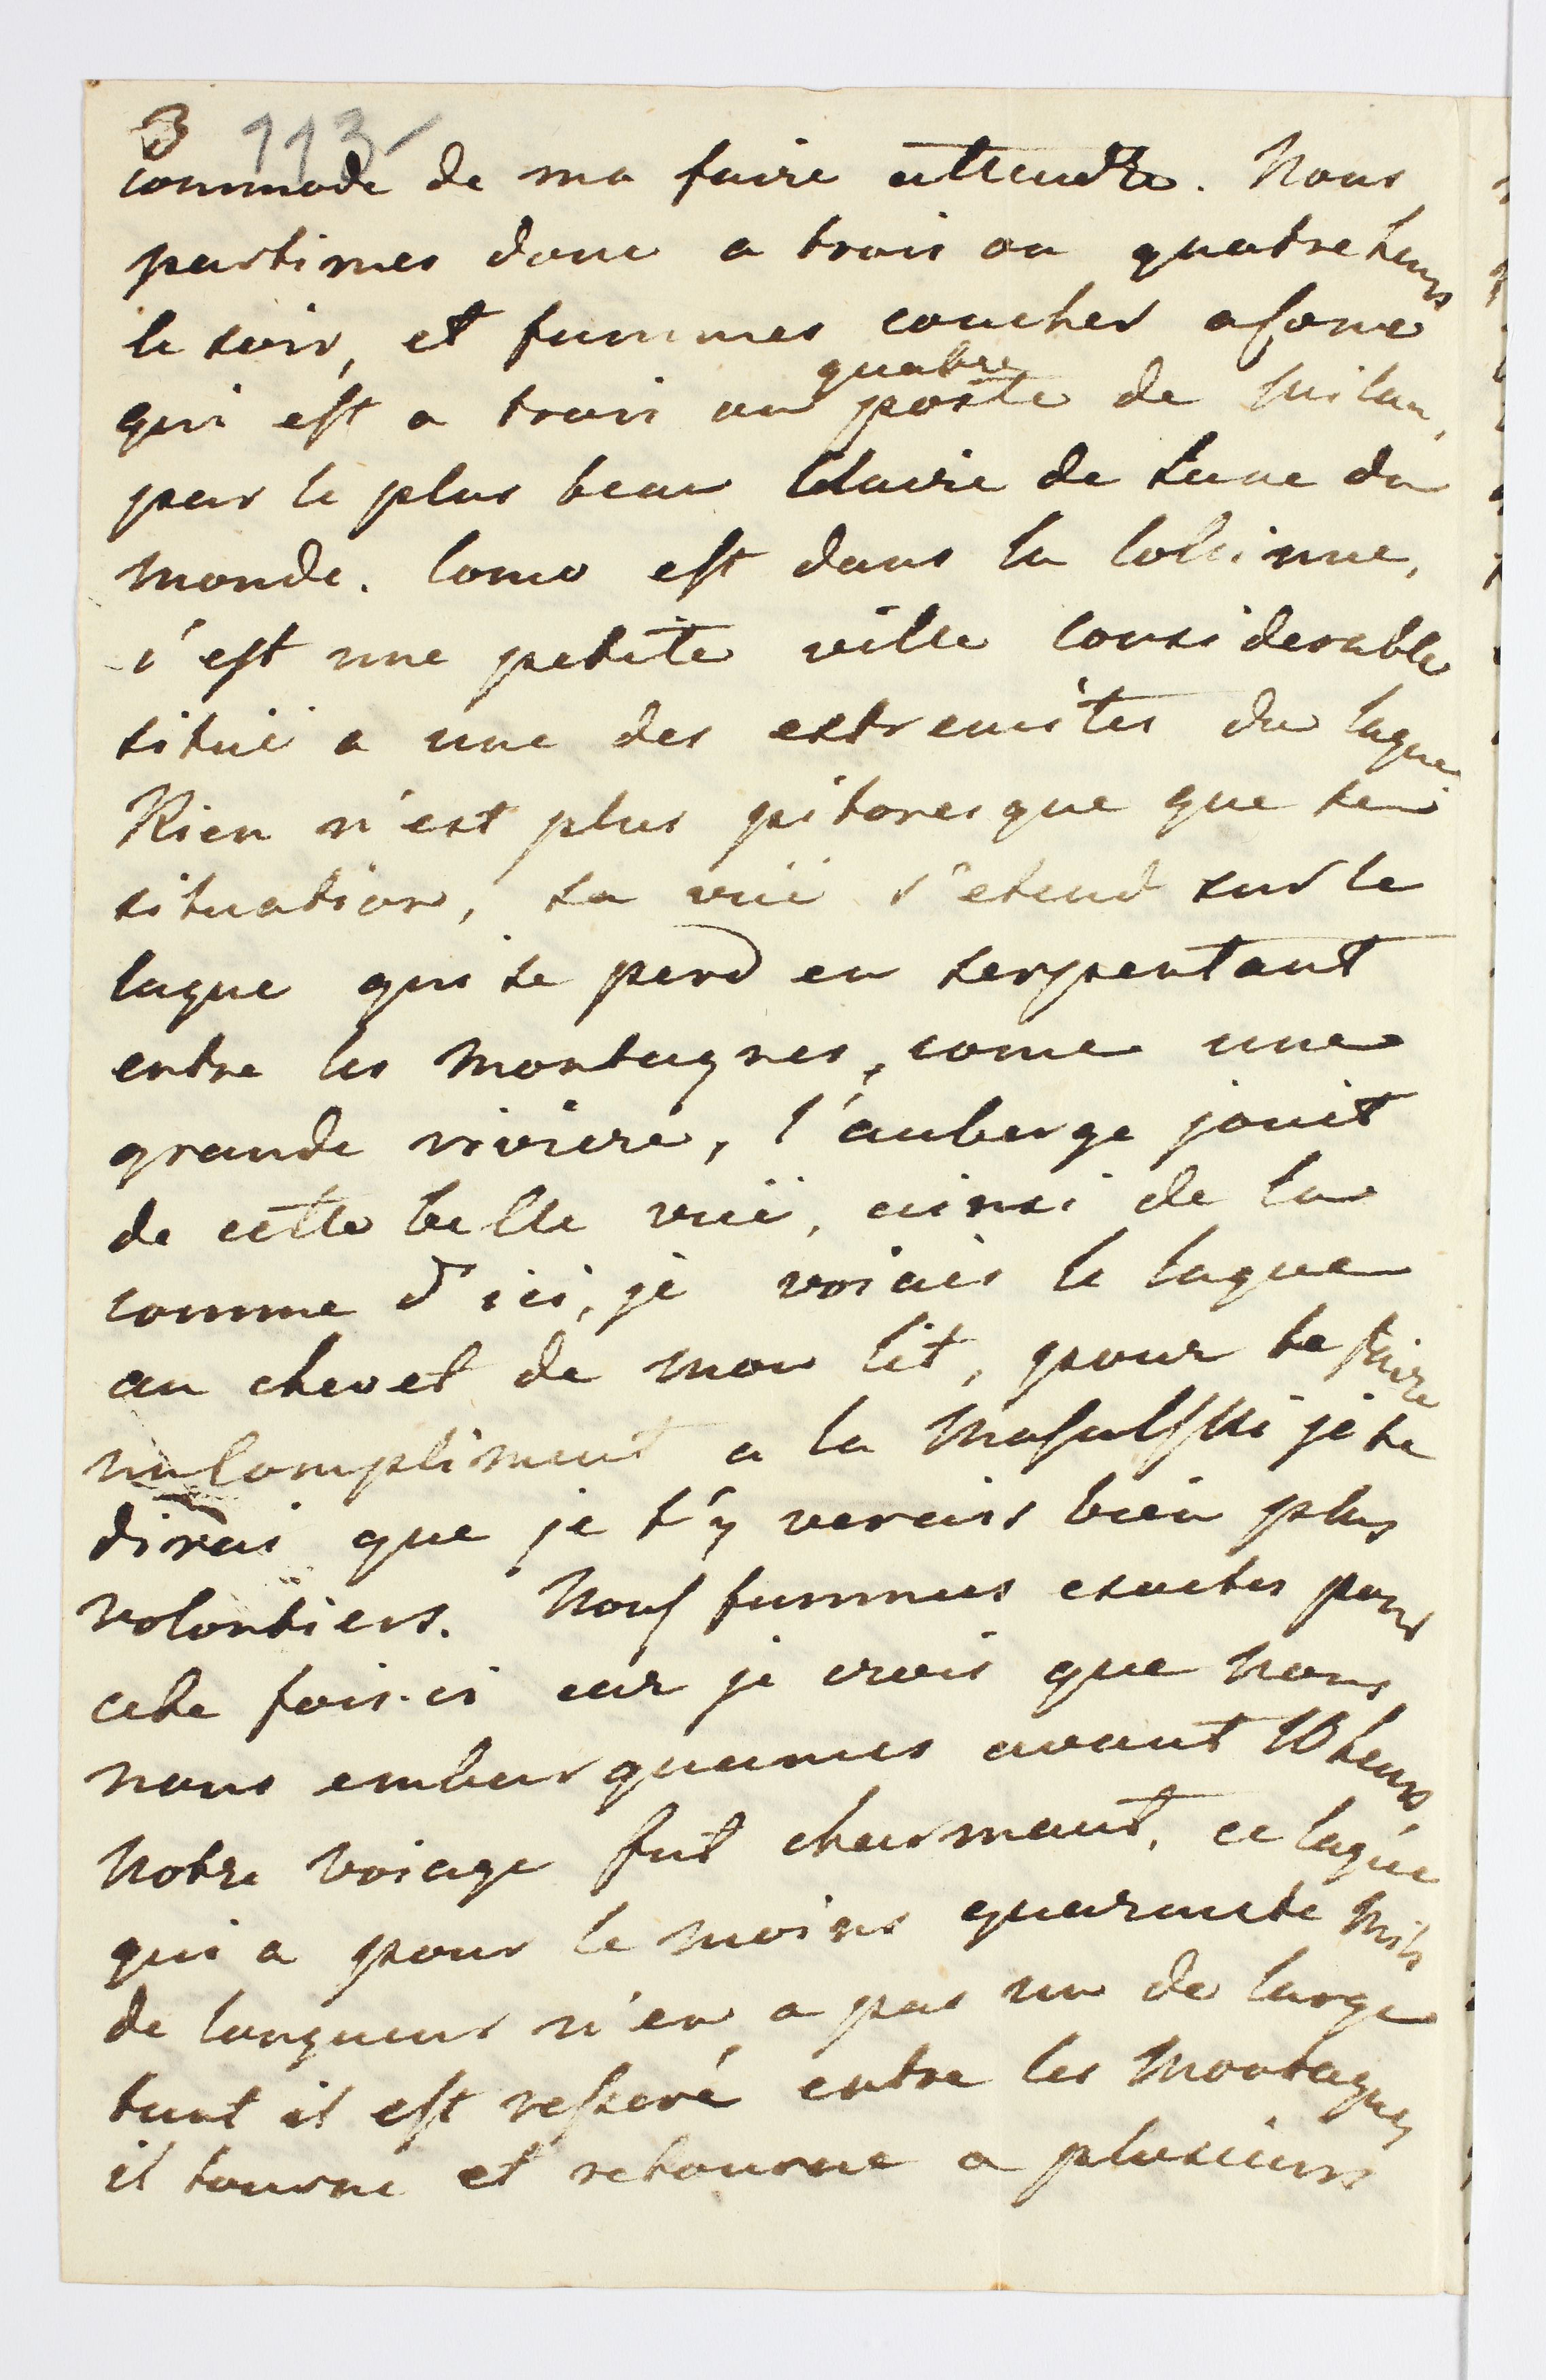 3 113-
commode de ma faire attendre. Nous
partimes donc a trois ou quatre heurs
le soir, et fummes coucher a Come
quatre
qui est a trois ou poste de Milan,
par le plus beau Claire de Lune du
monde. Como est dans la Colinne,
c'est une petite ville considerable
situé a une des extremités du laque
Rien n'est plus pitoresque que sa
situation, sa vuë s'etend sur le
laque qui se perd en serpentant
entre les montagnes, come une
grande riviere, l'auberge jouit
de cette belle vuë, ainsi de la
comme d'ici, je voiais le laque
au chevet de mon lit, pour te faire
un Compliment a la Massalski je te
dirai que je t'y verais bien plus
volontiers. Nous fummes exactes pour
cete fois-ci car je crois que nous
nous embarquames avant 10 heurs
Notre voiage fut charmant, ce laque
qui a pour le moins quarante Mils
de longueur n'en a pas un de large
tant il est resseré entre les Montagnes
il tourne et retourne a plusieurs